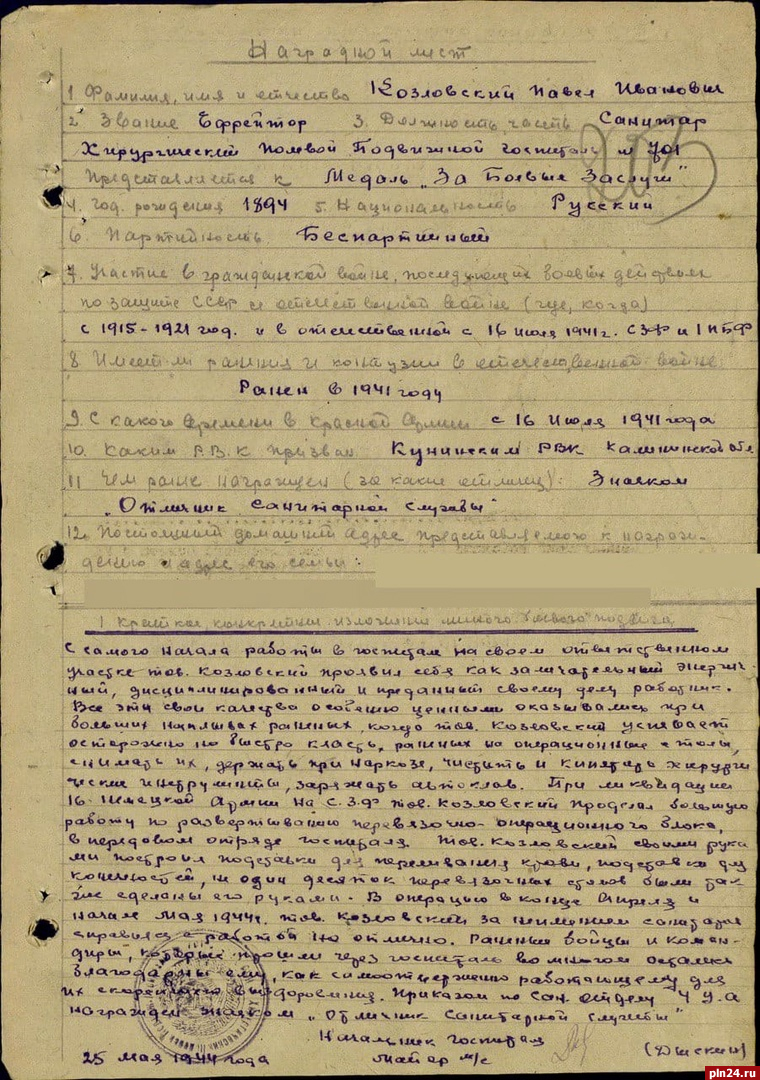 Наградной лист
1 Фамилия, имя и отчество Козловский Павел Иванович
2 Звание Ефрейтор 3. Должность, часть Санитар
Хирургический Полевой Подвижной госпиталь № 701
Представляется к Медаль „За Боевые Заслуги"
4. год. рождения 1894 5. Национальность Русский
6. Партийность Беспартийный
7. Участие в гражданской войне, последующих боевых действиях
по защите СССР и отечественной войне (где, когда)
с 1915-1921 год. и в отечественной с 16 июля 1941г. СЗФ и I ПБФ
8 Имеет ли ранения и контузии в отечественной войне
Ранен в 1941 году
9. С какого времени в Красной Армии с 16 Июля 1941 года
10. Каким Р.В.К призван Куньинским РВК Калининской обл
11 Чем ранее награжден (за какие отличия): Значком
„Отличник санитарной службы"
12. Постоянный домашний адрес представляемого к награж-
дению и адрес его семьи:
1 Краткое, конкретное изложение личного боевого подвига
С самого начала работы в госпитале на своем ответственном
участке тов. Козловский проявил себя как замечательный энергич-
ный, дисциплинированный и преданный своему делу работник.
Все эти свои качества особенно ценными оказывались при
больших наплывах раненых, когда тов. Козловский успевает
осторожно но быстро класть, раненых на операционные столы,
снимать их, держать при наркозе, чистить и кипятить хирурги
ческие инструменты, заряжать автоклав. При ликвидации
16 Немецкой Армии на С.З.Ф тов. Козловский проделал большую
работу по развертыванию перевязочно-операционного блока,
в передовом отряде госпиталя. Тов. Козловский своими рука
ми построил подставки для переливания крови, подставки для
конечностей, не один десяток перевязочных столов были так
же сделаны его руками. В операцию в конце Апреля и
начале Мая 1944г. тов. Козловский за неимением санитаров
справился с работой на отлично. Раненые бойцы и коман-
диры, которые прошли через госпиталь во многом остались
благодарны ему, как самоотверженно работающему для
их скорейшего выздоровления. Приказом по сан. отделу 4 У.А
награжден значком „Отличник санитарной службы"
Начальник госпиталя
25 мая 1944 года Майор м/с (Дыскин)
pln24.ru